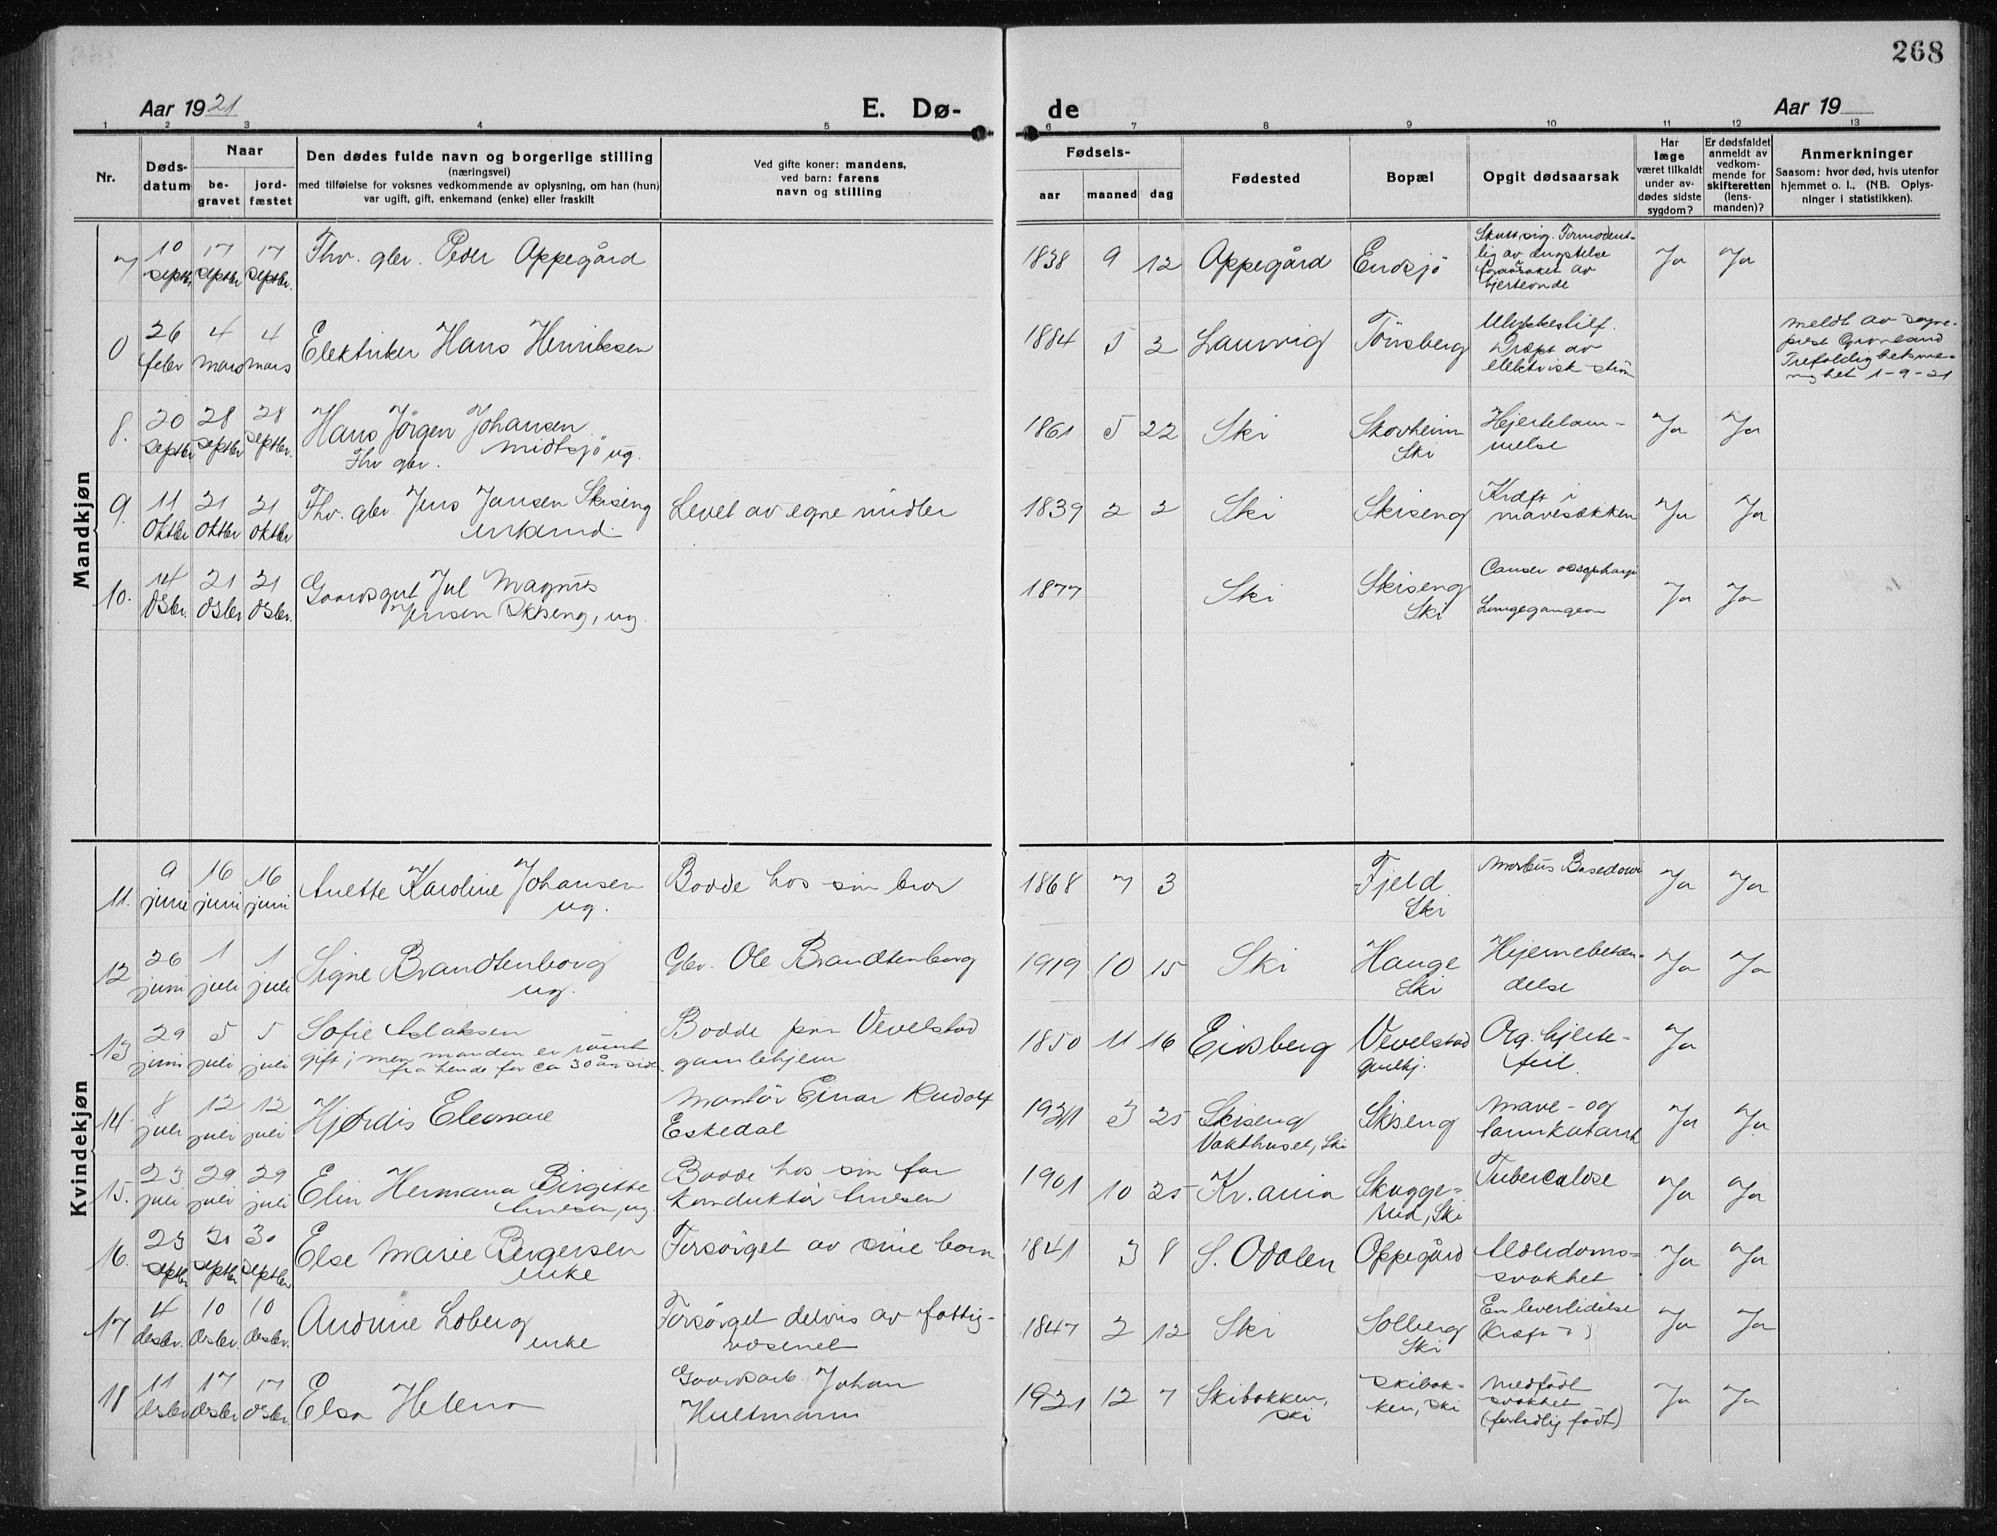 268
Aar 1921
E. Dø-
de
Aar 19
1 2 3 4 5 6 7 8 9 10 11 12 13
Nr.
Døds-
datum
Naar
be-
gravet
jord-
fæstet
Den dødes fulde navn og borgerlige stilling
(næringsvei)
med tilføielse for voksnes vedkommende av oplysning, om han (hun)
var ugift, gift, enkemand (enke) eller fraskilt
Ved gifte koner: mandens,
ved barn: farens
navn og stilling
Fødsels-
aar maaned dag
Fødested
Bopæl
Opgit dødsaarsak
Har
læge
været tilkaldt
under av-
dødes sidste
sygdom?
Er dødsfaldet
anmeldt av
vedkom-
mende for
skifteretten
(lens-
manden)?
Anmerkninger
Saasom: hvor død, hvis utenfor
hjemmet o. l., (NB. Oplys-
ninger i statistikken).
Mandkjøn
7 10 septbr 17 septbr 17 septbr. Fhv. gbr. Peder Oppegård 1838 9 12 Oppegård Endsjö
Skutt sig. Formodent-
lig av ængstelse
foraarsaket av
hjerteonde
Ja Ja
0 26 febr 4 mars 4 mars Elektriker Hans Henriksen 1884 5 3 Laurvig Tönsberg
Ulykkestilf.
Dræpt av
elektrisk ström
meldt av sogne-
prest Grönland
Trefoldighetsme-
nighet 1-9-21
8. 20 septbr 28 septbr 28 septbr. Hans Jörgen Johansen
Midtsjö ug.
Fhv gbr.
1861 5 22 Ski Skovheim
Ski
Hjertelam-
melse
Ja Ja
9. 11 oktbr 21 oktbr 21 oktbr Fhv. gbr. Jens Jansen Skiseng
enkemd.
Levet av egne midler 1839 2 2 Ski Skiseng
Kræft i
mavesækken
Ja Ja
10. 14 21 21 Gaardsgut Jul Magnus
Jensen Skiseng, ug.
1877 Ski Skiseng
Ski
Cancer
Lungegangræn
Ja Ja
Kvindekjøn
11. 9 juni 16 juni 16 juni Anette Karoline Johansen
ug.
Bodde hos sin bror 1868 7 3 Fjeld
Ski
Morbus Basedowi Ja Ja
12 26 juni 1 juli 1 juli Signe Brandtenborg
ug.
Gbr. Ole Brandtenborg 1919 10 15 Ski Hauge
Ski
Hjernebetæn-
delse
Ja Ja
13 29 juni 5 juli 5 juli Sofie Aslaksen
gift; men manden er rømt
fra hende for ca 30 år siden
Bodde paa Vevelstad
gamlehjem
1850 11 16 Eidsberg Vevelstad
gmlhj.
Org. hjerte-
feil.
Ja
14. 8 juli 12 juli 12 juli Hjørdis Eleonore
Montör Einar Rudolf
Eskedal
1921 3 25 Skiseng
Vokthuset, Ski
Skiseng
Mave- og
tarmkatarrh
Ja Ja
15. 23 juli 29 juli 29 juli Elin Hermana Birgitte
Arnesen, ug.
Bodde hos sin far
konduktör Arnesen
1901 10 25 Kr.ania Skugge-
rud, Ski
Tuberculose Ja Ja
16. 23 septbr 30 septbr 30 septbr Else Marie Bergersen
enke
Forsörget av sine barn 1841 3 8 S. Odalen Oppegård
Alderdoms-
svakhet
Ja Ja
17 4 desbr. 10 desbr. 10 desbr. Andrine Loberg
enke
Forsörget delvis av fattig-
væsenet
1847 2 12 Ski Solberg
Ski
En leverlidelse
(Kræft ?)
Ja Ja
18 11 desbr 17 desbr 17 desbr. Elsa Helena
Gaardsarb. Johan
Hultmann
1921 12 7 Skibakken,
Ski
Skibak-
ken, Ski
Medfödt
svakhet
(fortidlig födt)
Ja Ja